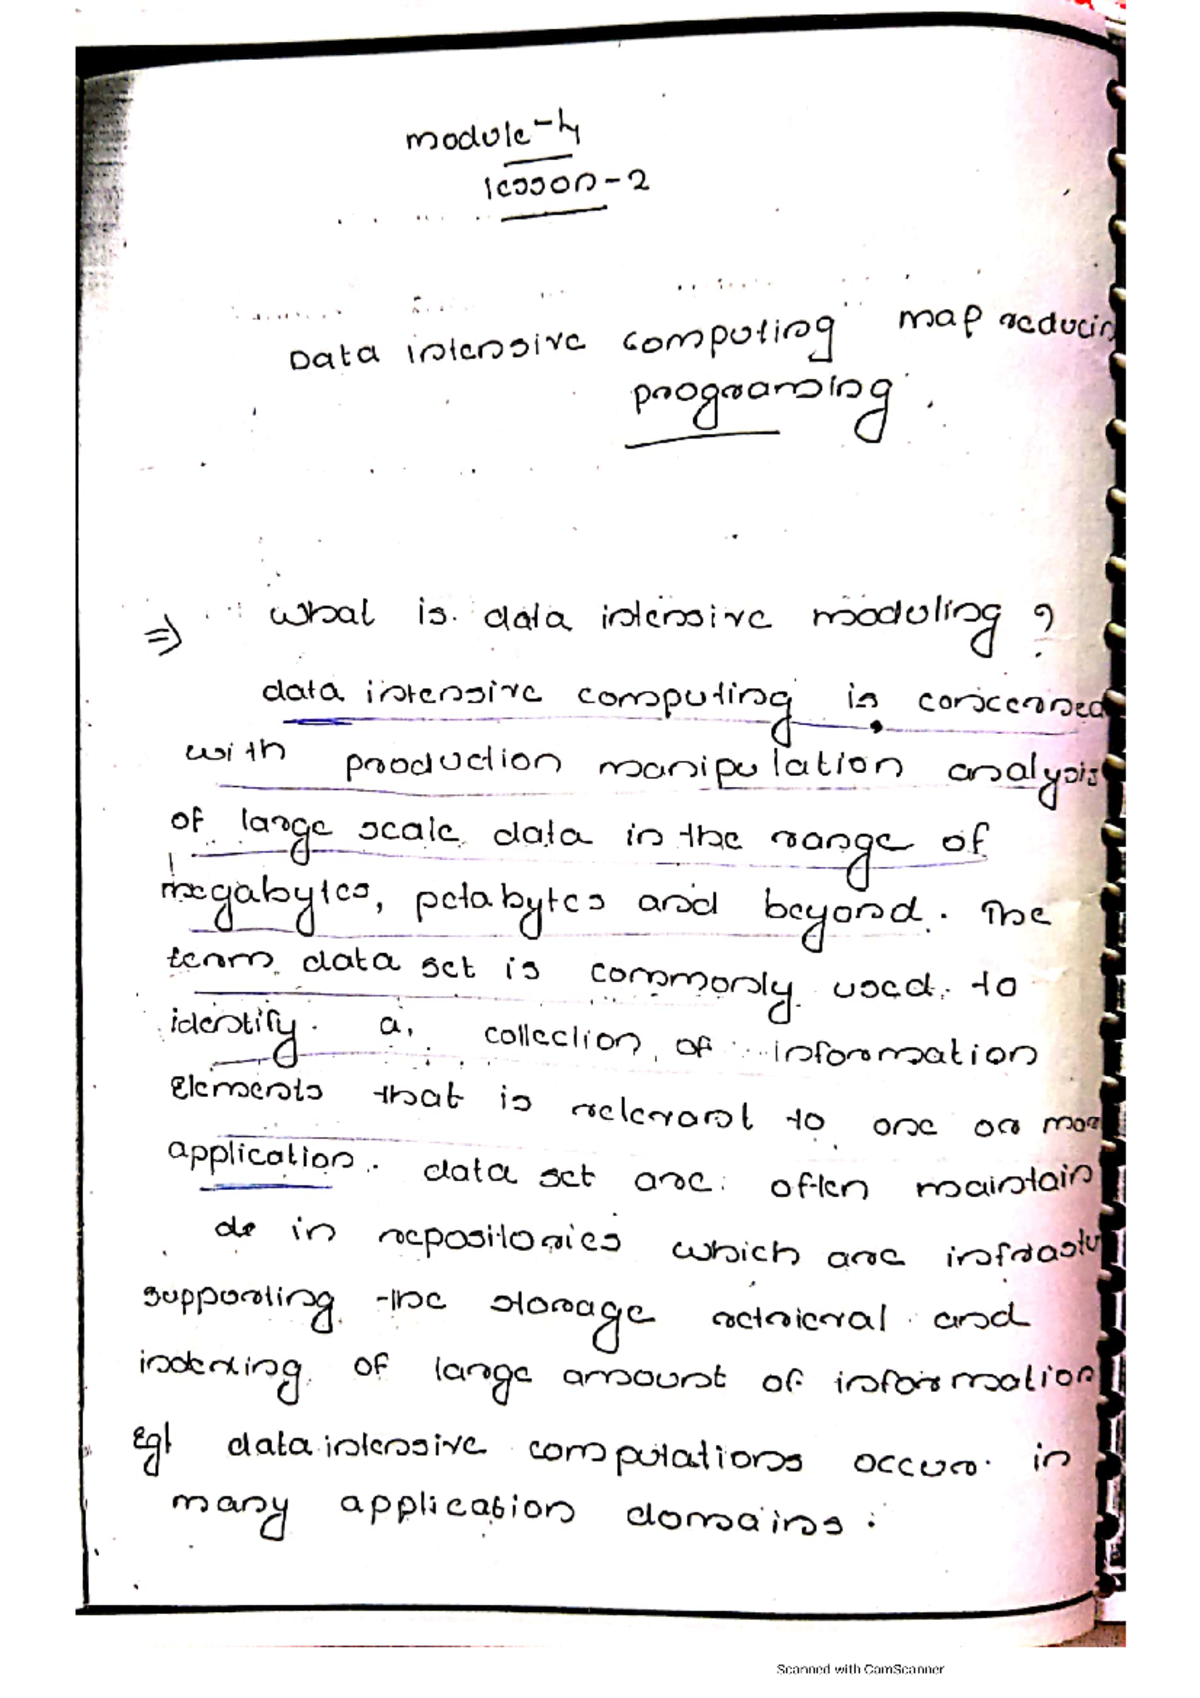 module-4
lesson-2
Data intensive computing map reducin
programing.
⇒ what is data intensive moduling ?
data intensive computing is concerned
with production manipulation analysis
of large scale data in the range of
megabytes, petabytes and beyond. The
term data set is commonly used to
identify a collection of information
Elements that is relevant to one or mor
application. data set are often maintain
de in repositories which are infrastu
supporting the storage retrieval and
indexing of large amount of information
Eg! data intensive computations occur in
many application domains.
Scanned with CamScanner